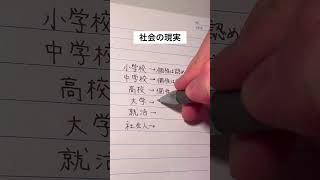 社会の現実
小学校→個性は認め
中学校→個性は
高校→個性
大学→
就活→
社会人→
大学
就活